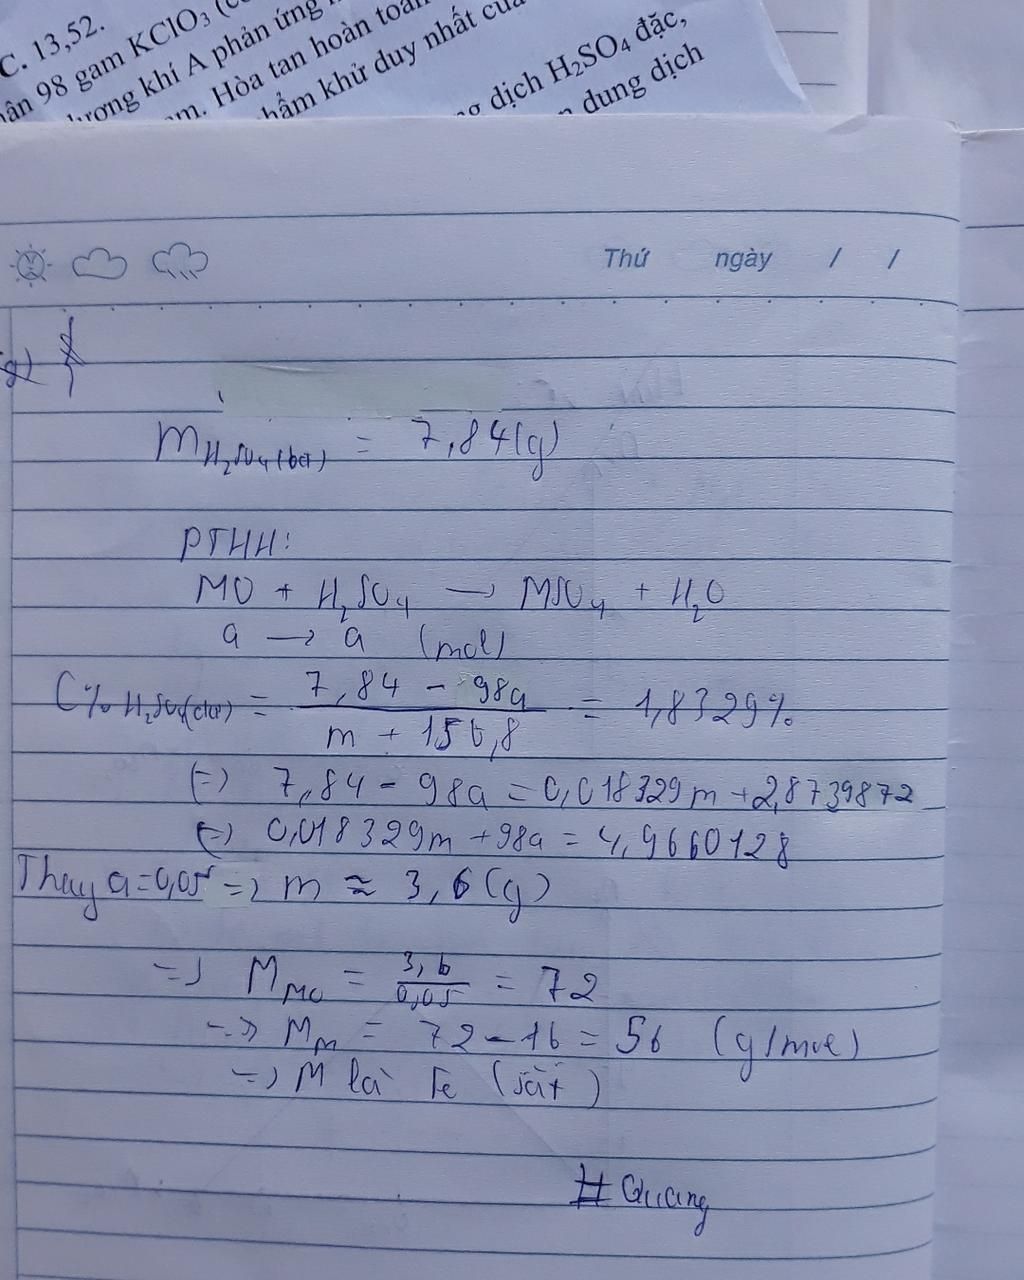 C. 13,52.
ân 98 gam KClO₃ (c
lượng khí A phản ứng
m. Hòa tan hoàn toàn
phẩm khử duy nhất của
dịch H₂SO₄ đặc,
dung dịch
Thứ ngày / /
g)
m H₂SO₄ (bđ) = 7,84 (g)
PTHH:
MO + H₂SO₄ → MSO₄ + H₂O
a → a (mol)
C% H₂SO₄(dư) = (7,84 - 98a) / (m + 156,8) = 1,8329%
(=) 7,84 - 98a = 0,018329m + 2,8739872
(=) 0,018329m + 98a = 4,9660128
Thay a = 0,05 => m ≈ 3,6 (g)
=> M MO = 3,6 / 0,05 = 72
=> M M = 72 - 16 = 56 (g/mol)
=> M là Fe (sắt)
# Quang